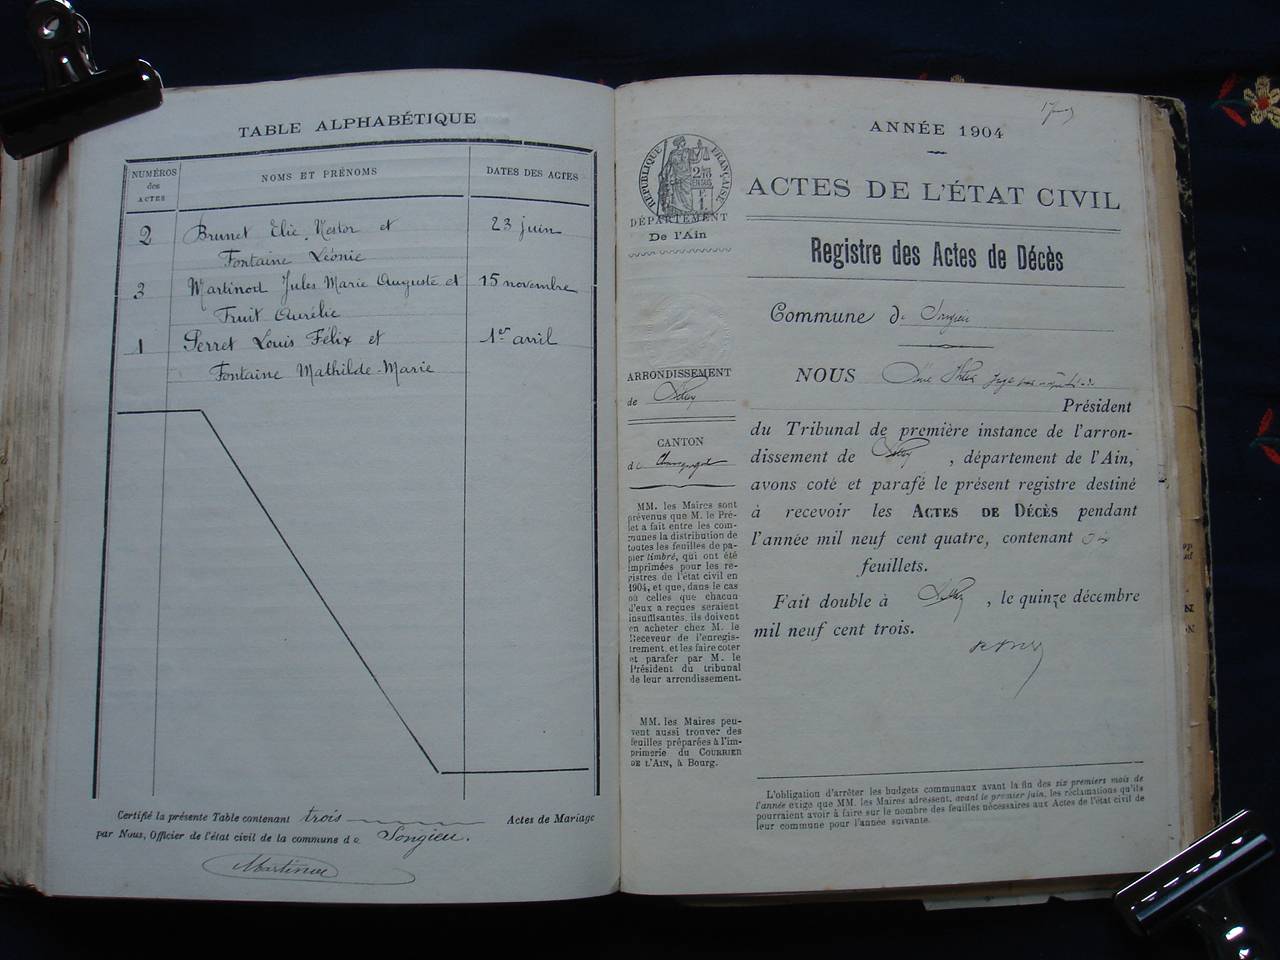 TABLE ALPHABÉTIQUE
NUMÉROS des ACTES
NOMS ET PRÉNOMS
DATES DES ACTES
2 Brunet Elie Nestor et 23 juin
Fontaine Léonie
3 Martinod Jules Marie Auguste et 15 novembre
Fruit Aurélie
1 Perret Louis Félix et 1er avril
Fontaine Mathilde-Marie
Certifié la présente Table contenant trois Actes de Mariage
par Nous, Officier de l'état civil de la commune de Songieu.
ANNÉE 1904
RÉPUBLIQUE FRANÇAISE
DÉPARTEMENT
De l'Ain
ACTES DE L'ÉTAT CIVIL
Registre des Actes de Décès
Commune de Songieu
ARRONDISSEMENT
de Belley
CANTON
de
MM. les Maires sont
prévenus que M. le Pré-
fet a fait entre les com-
munes la distribution de
toutes les feuilles de pa-
pier timbré, qui ont été
imprimées pour les re-
gistres de l'état civil en
1904, et que, dans le cas
où celles que chacun
d'eux a reçues seraient
insuffisantes, ils doivent
en acheter chez M. le
Receveur de l'enregis-
trement, et les faire coter
et parafer par M. le
Président du tribunal
de leur arrondissement.
MM. les Maires peu-
vent aussi trouver des
feuilles préparées à l'im-
primerie du COURRIER
DE L'AIN, à Bourg.
NOUS
Président
du Tribunal de première instance de l'arron-
dissement de Belley, département de l'Ain,
avons coté et parafé le présent registre destiné
à recevoir les ACTES DE DÉCÈS pendant
l'année mil neuf cent quatre, contenant
feuillets.
Fait double à Belley, le quinze décembre
mil neuf cent trois.
L'obligation d'arrêter les budgets communaux avant la fin des six premiers mois de
l'année exige que MM. les Maires adressent, avant le premier juin, les réclamations qu'ils
pourraient avoir à faire sur le nombre des feuilles nécessaires aux Actes de l'état civil de
leur commune pour l'année suivante.